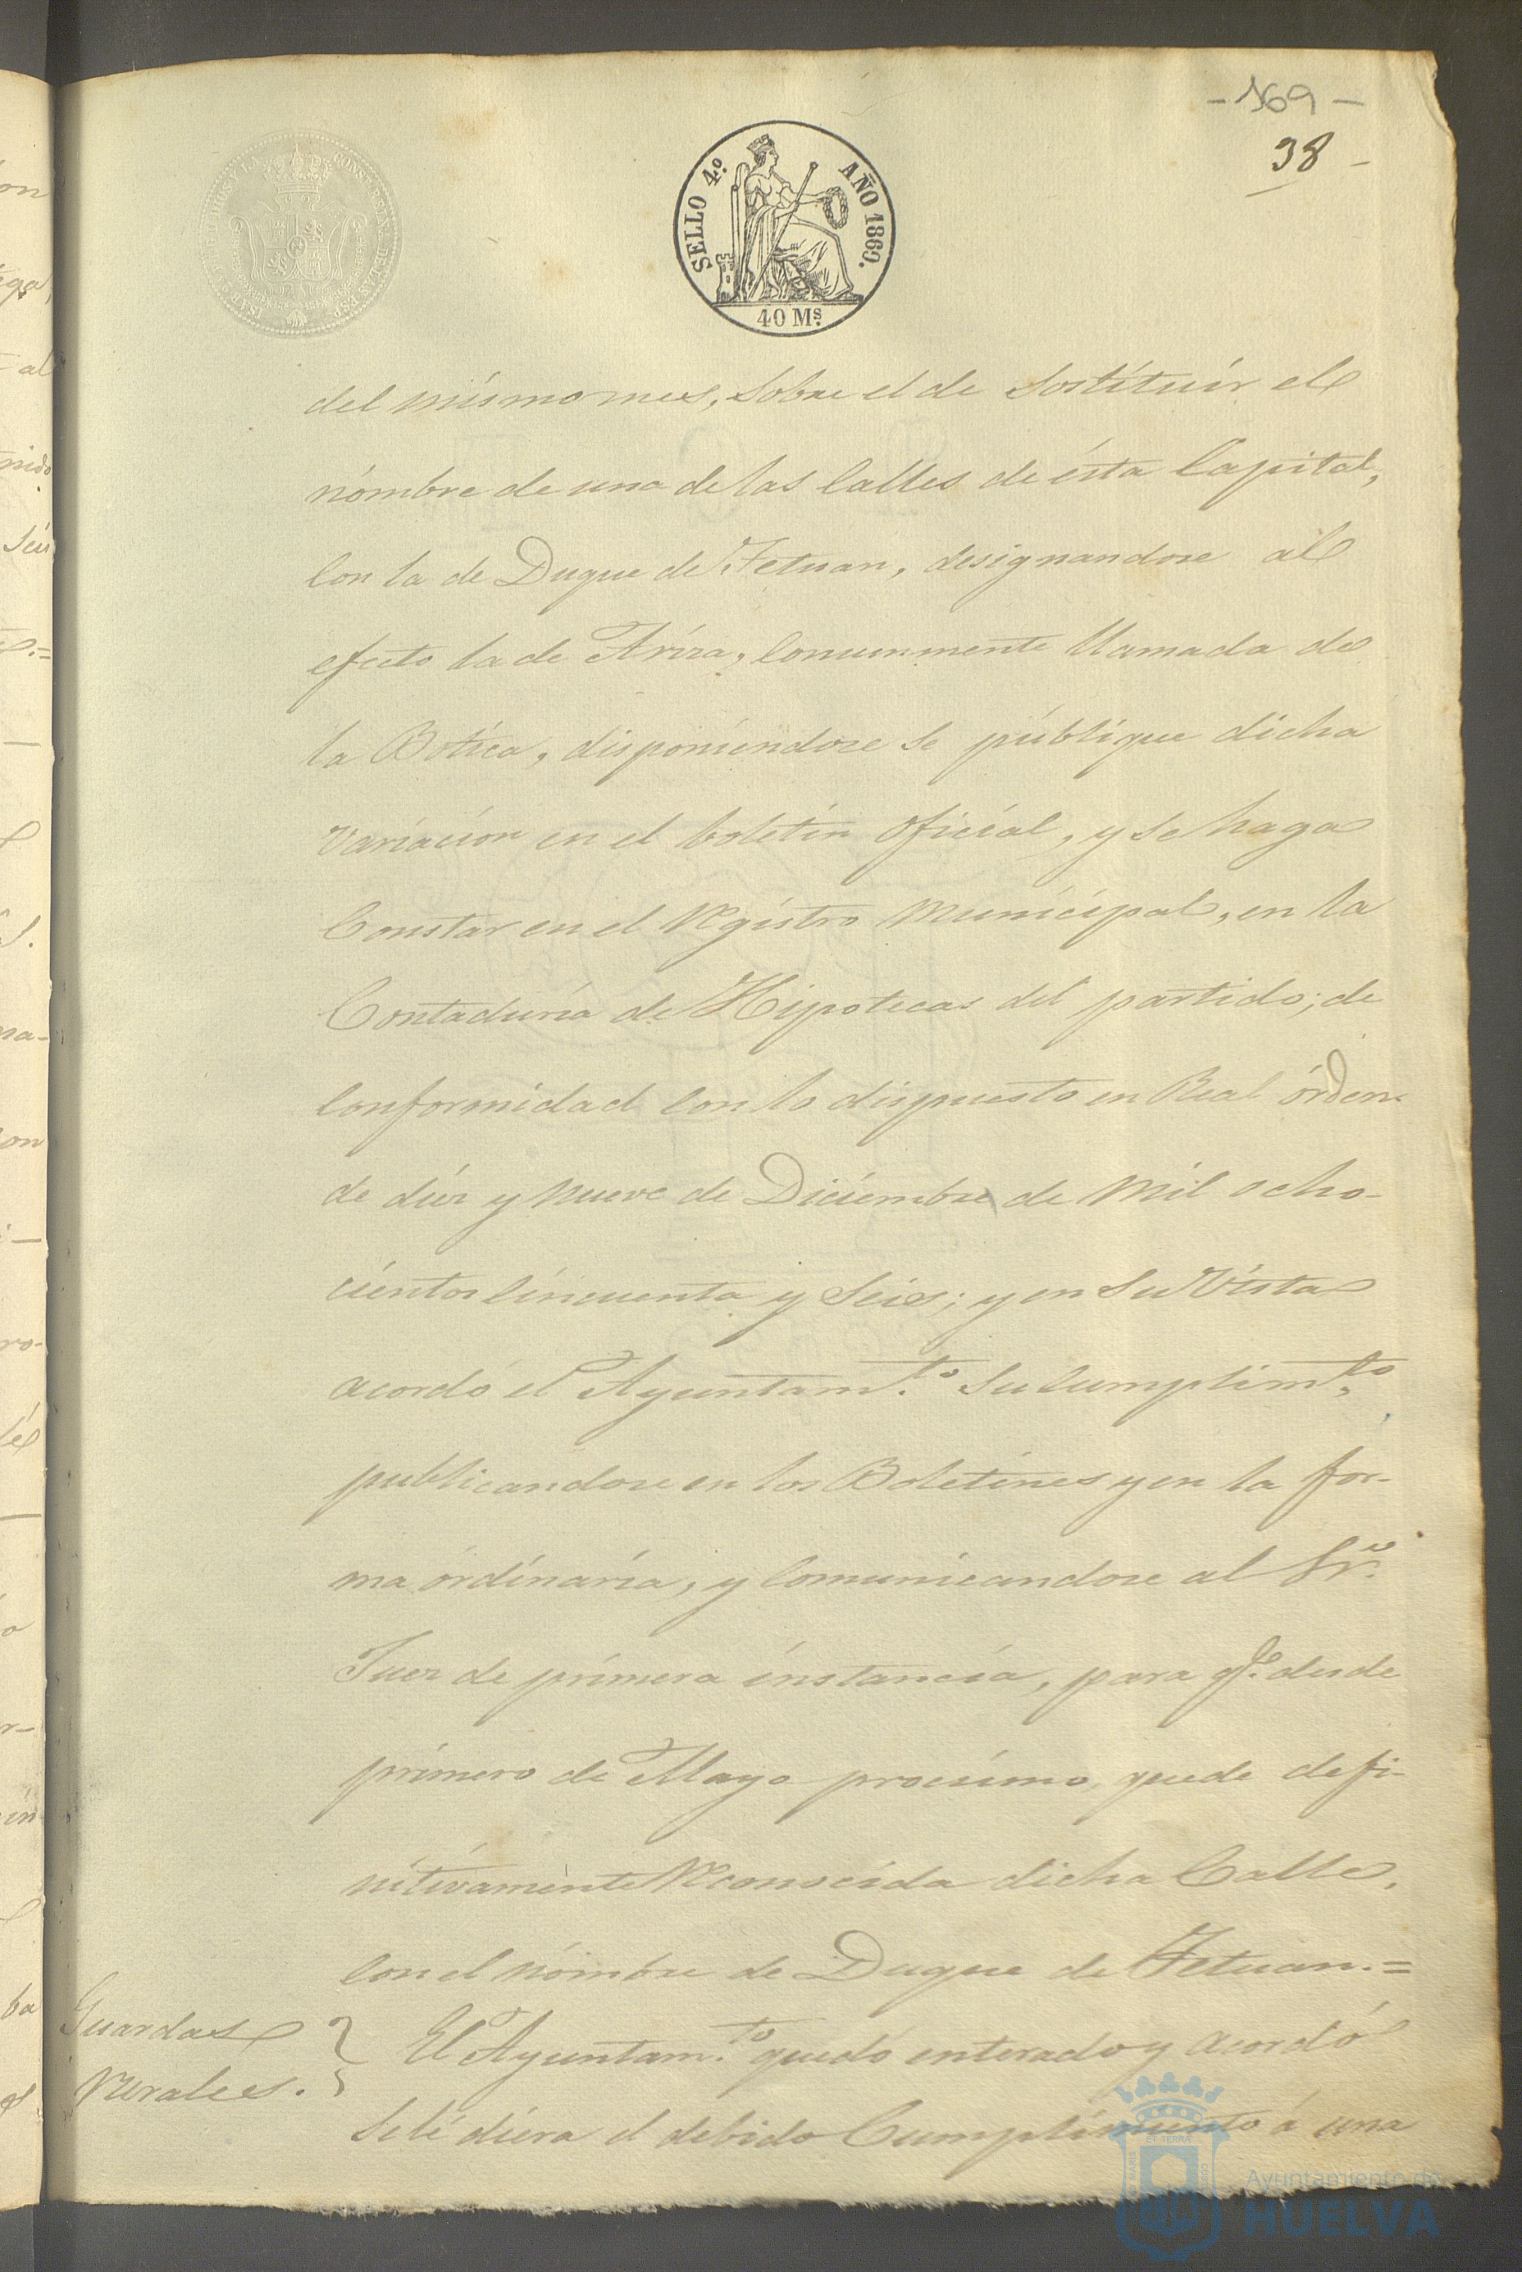 - 169 -
38 -
SELLO 4.º AÑO 1860.
40 Ms.
del mismo mes, sobre el de sostituir el
nómbre de una de las Calles de ésta Capital,
con la de Duque de Tetuan, designandose al
efecto la de Ariza, comunmente llamada de
la Botica, disponiendose se públique dicha
variacion en el boletin oficial, y se haga
Constar en el Registro Municipal, en la
Contaduria de Hipotecas del partido; de
conformidad con lo dispuesto en Real órden
de diez y nueve de Diciembre de mil ocho-
cientos cincuenta y seis; y en su vista
acordó el Ayuntam.to su cumplim.to
publicandose en los Boletines y en la for-
ma órdinaria, y comunicandose al Sr.
Juez de primera instancia, para q.e desde
primero de Mayo procsimo, quede defi-
nitivamente Reconocida dicha Calle,
con el nómbre de Duque de Tetuan.=
Guardas
Rurales.
El Ayuntam.to quedó enterado y acordó
se lé diera el debido Cumplimiento á una
Ayuntamiento de
HUELVA